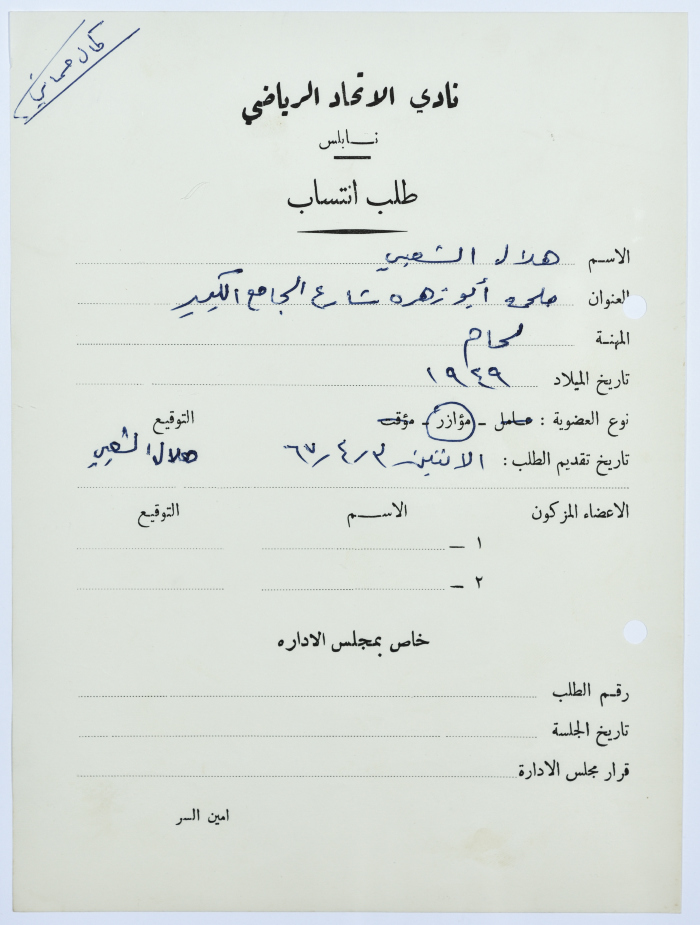 كمال
نادي الاتحاد الرياضي
نابلس
طلب انتساب
الاسم هلال الشعبي
العنوان ملحمة أبو زهره شارع الجامع الكبير
المهنة لحام
تاريخ الميلاد ١٩٤٩
نوع العضوية : عامل - مؤازر - مؤقت التوقيع
تاريخ تقديم الطلب : الاثنين ٣/٤/٦٧ هلال الشعبي
الاعضاء المزكون الاسم التوقيع
١ —
٢ —
خاص بمجلس الاداره
رقم الطلب
تاريخ الجلسة
قرار مجلس الادارة
امين السر